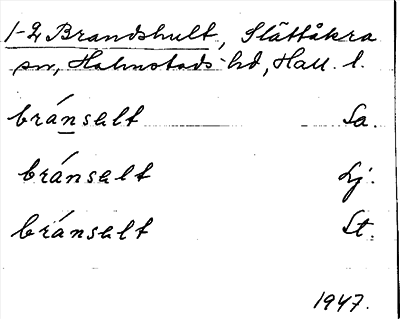 1-2 Brandshult, Slättåkra
sn, Halmstads hd, Hall. l.
bránsɐlt Sa.
bránsɐlt Lj.
bránsɐlt St.
1947.